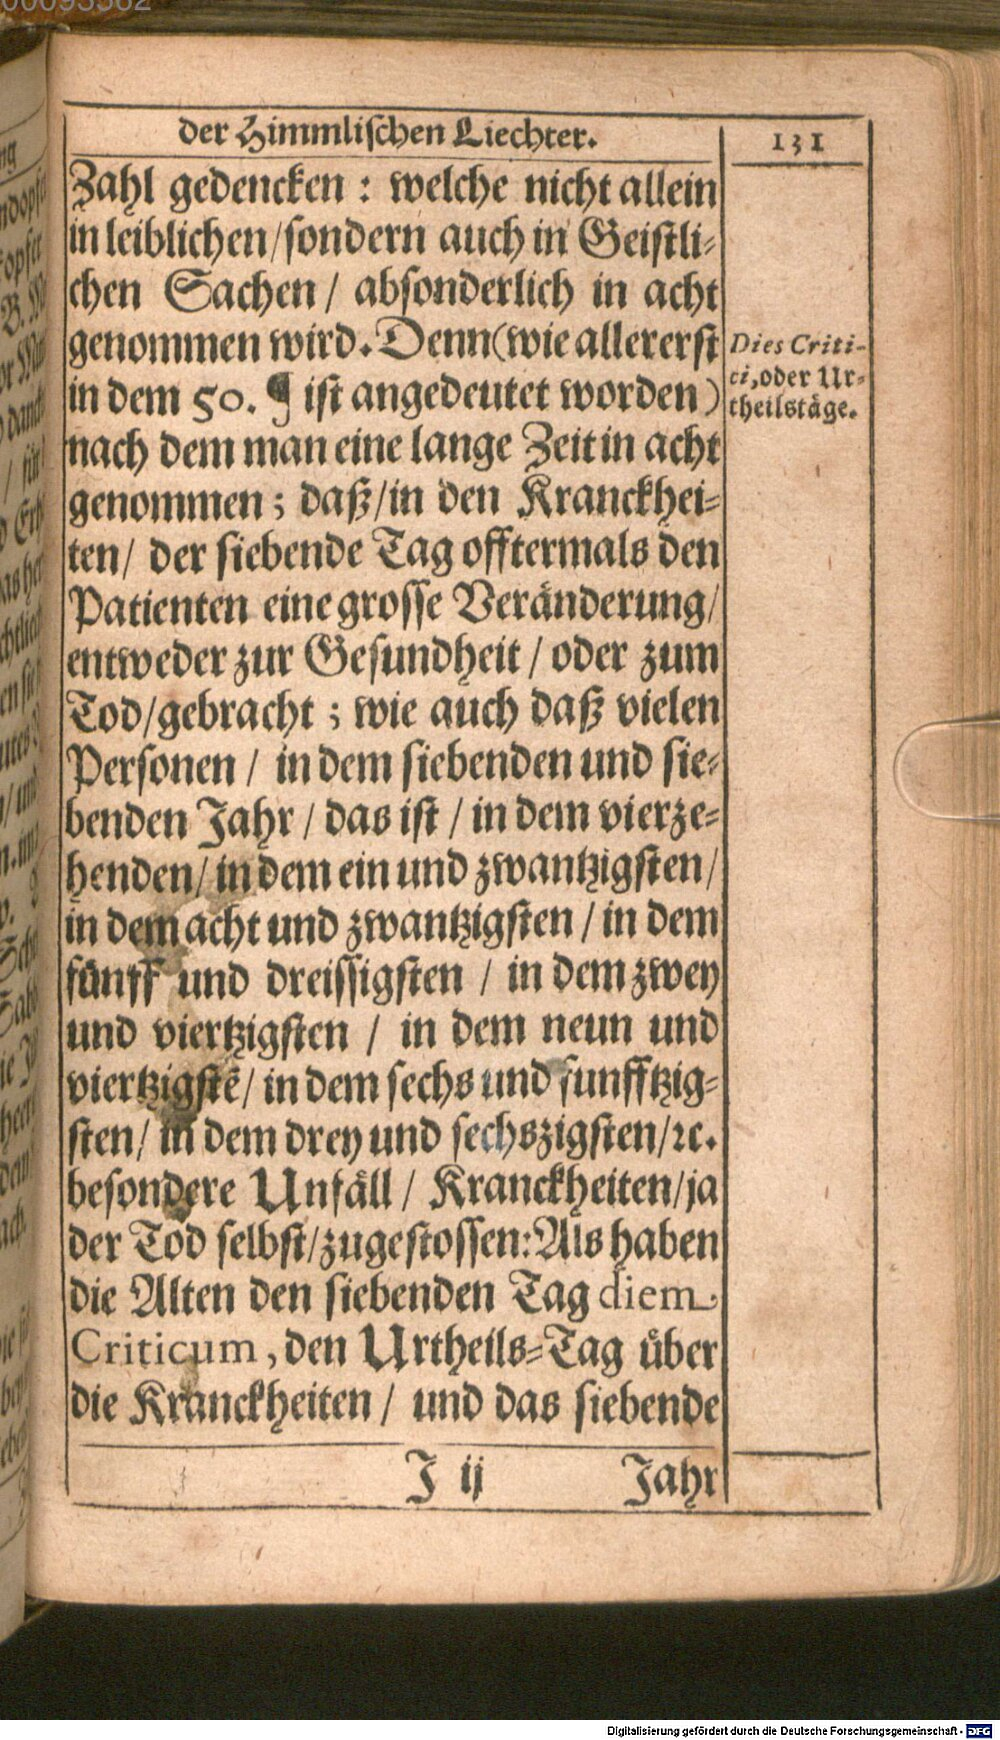 00093582
der Himmlischen Liechter.
131
Zahl gedencken : welche nicht allein
in leiblichen/sondern auch in Geistli-
chen Sachen / absonderlich in acht
genommen wird. Denn (wie allererst
in dem 50. ¶ ist angedeutet worden)
nach dem man eine lange Zeit in acht
genommen ; daß/in den Kranckhei-
ten/ der siebende Tag offtermals den
Patienten eine grosse Veränderung/
entweder zur Gesundheit / oder zum
Tod/gebracht ; wie auch daß vielen
Personen / in dem siebenden und sie-
benden Jahr / das ist / in dem vierze-
henden/ in dem ein und zwantzigsten/
in dem acht und zwantzigsten / in dem
fünff und dreissigsten / in dem zwey
und viertzigsten / in dem neun und
viertzigstẽ/ in dem sechs und funfftzig-
sten/ in dem drey und sechszigsten/ꝛc.
besondere Unfäll / Kranckheiten/ja
der Tod selbst/zugestossen: Als haben
die Alten den siebenden Tag diem
Criticum, den Urtheils-Tag über
die Kranckheiten / und das siebende
J ij Jahr
Dies Criti-
ci, oder Ur-
theilstäge.
Digitalisierung gefördert durch die Deutsche Forschungsgemeinschaft - DFG